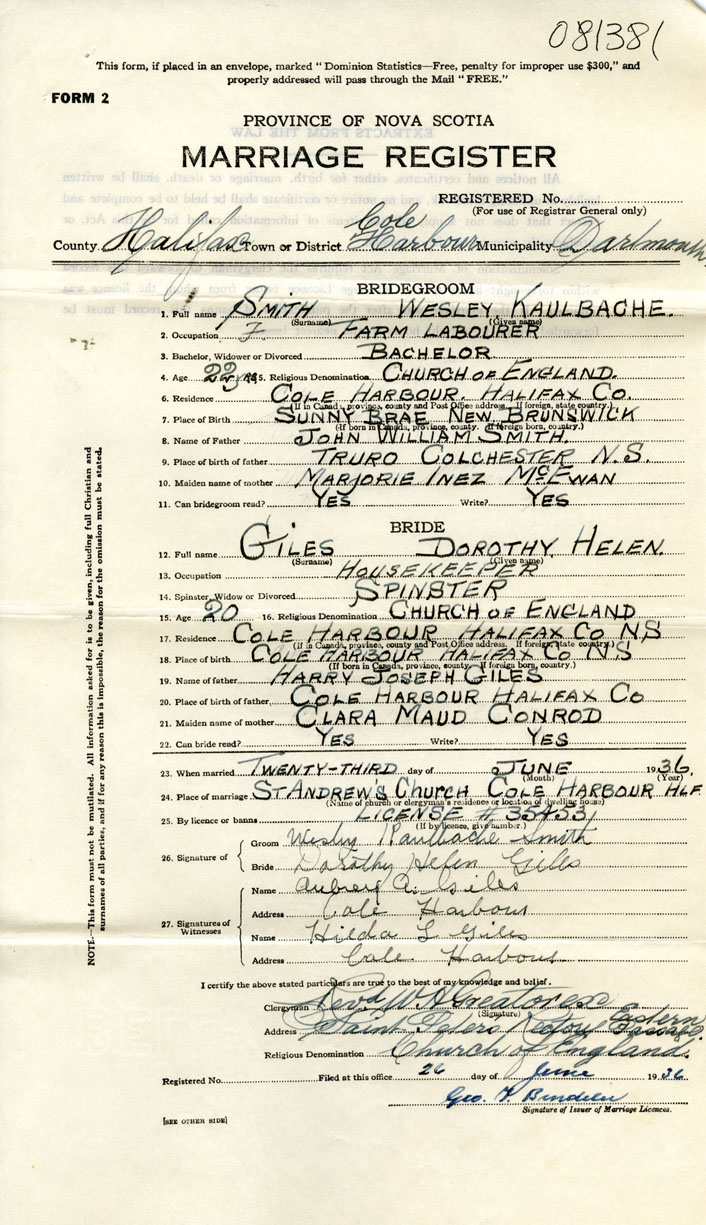 08138
This form, if placed in an envelope, marked “Dominion Statistics—Free, penalty for improper use $300,” and
properly addressed will pass through the Mail “FREE.”
FORM 2
PROVINCE OF NOVA SCOTIA
MARRIAGE REGISTER
REGISTERED No.
(For use of Registrar General only)
County Halifax Town or District Cole Harbour Municipality Dartmouth
BRIDEGROOM
1. Full name SMITH WESLEY KAULBACHE.
(Surname) (Given name)
2. Occupation FARM LABOURER
3. Bachelor, Widower or Divorced BACHELOR
4. Age 22 yrs 5. Religious Denomination CHURCH OF ENGLAND.
6. Residence COLE HARBOUR. HALIFAX CO.
(If in Canada, province, county and Post Office address. If foreign, state country.)
7. Place of Birth SUNNY BRAE NEW BRUNSWICK
(If born in Canada, province, county. If foreign born, country.)
8. Name of Father JOHN WILLIAM SMITH.
9. Place of birth of father TRURO COLCHESTER N.S.
10. Maiden name of mother MARJORIE INEZ McEWAN
11. Can bridegroom read? YES Write? YES
BRIDE
12. Full name GILES DOROTHY HELEN.
(Surname) (Given name)
13. Occupation HOUSEKEEPER
14. Spinster, Widow or Divorced SPINSTER
15. Age 20 16. Religious Denomination CHURCH OF ENGLAND
17. Residence COLE HARBOUR HALIFAX CO NS
(If in Canada, province, county and Post Office address. If foreign, state country.)
18. Place of birth COLE HARBOUR HALIFAX CO N.S
(If born in Canada, province, county. If foreign born, country.)
19. Name of father HARRY JOSEPH GILES
20. Place of birth of father COLE HARBOUR HALIFAX CO
21. Maiden name of mother CLARA MAUD CONROD
22. Can bride read? YES Write? YES
23. When married TWENTY-THIRD day of JUNE 1936,
(Month) (Year)
24. Place of marriage ST ANDREW'S CHURCH COLE HARBOUR HLF
(Name of church or clergyman's residence or location of dwelling house)
25. By licence or banns LICENSE # 35453
(If by licence, give number.)
26. Signature of
Groom Wesley Kaulbache Smith
Bride Dorothy Helen Giles
27. Signatures of Witnesses
Name Aubrey A. Giles
Address Cole Harbour
Name Hilda L Giles
Address Cole Harbour
I certify the above stated particulars are true to the best of my knowledge and belief.
Clergyman Revd W H Greatorex
(Signature)
Address Saint Peters Rectory Eastern Passage
Religious Denomination Church of England.
Registered No. Filed at this office 26 day of June 1936
Geo. F.
Signature of Issuer of Marriage Licences.
[SEE OTHER SIDE]
NOTE.—This form must not be mutilated. All information asked for is to be given, including full Christian and
surnames of all parties, and if for any reason this is impossible, the reason for the omission must be stated.